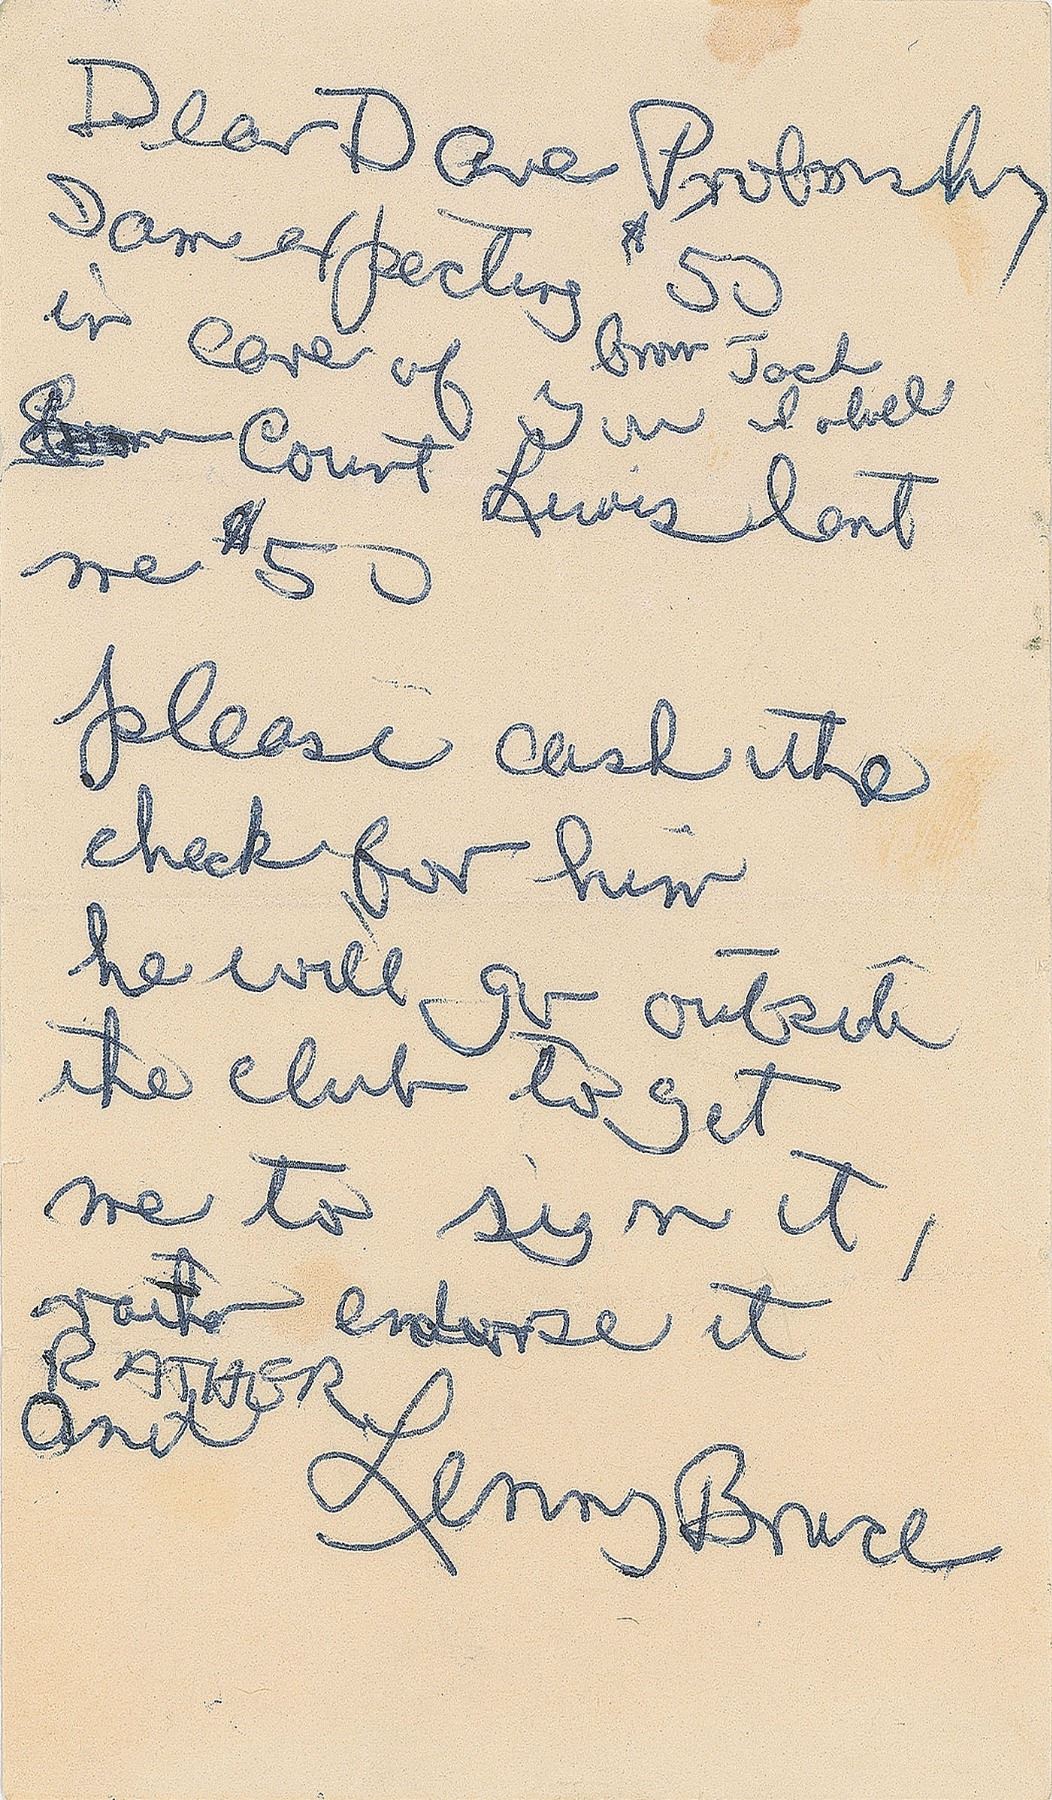 Dear Dave
I am expecting $50
in care of from Jack
Court Lewis lent
me $50
please cash the
check for him
he will go outside
the club to get
me to sign it,
endorse it
RATHER
and
Lenny Bruce